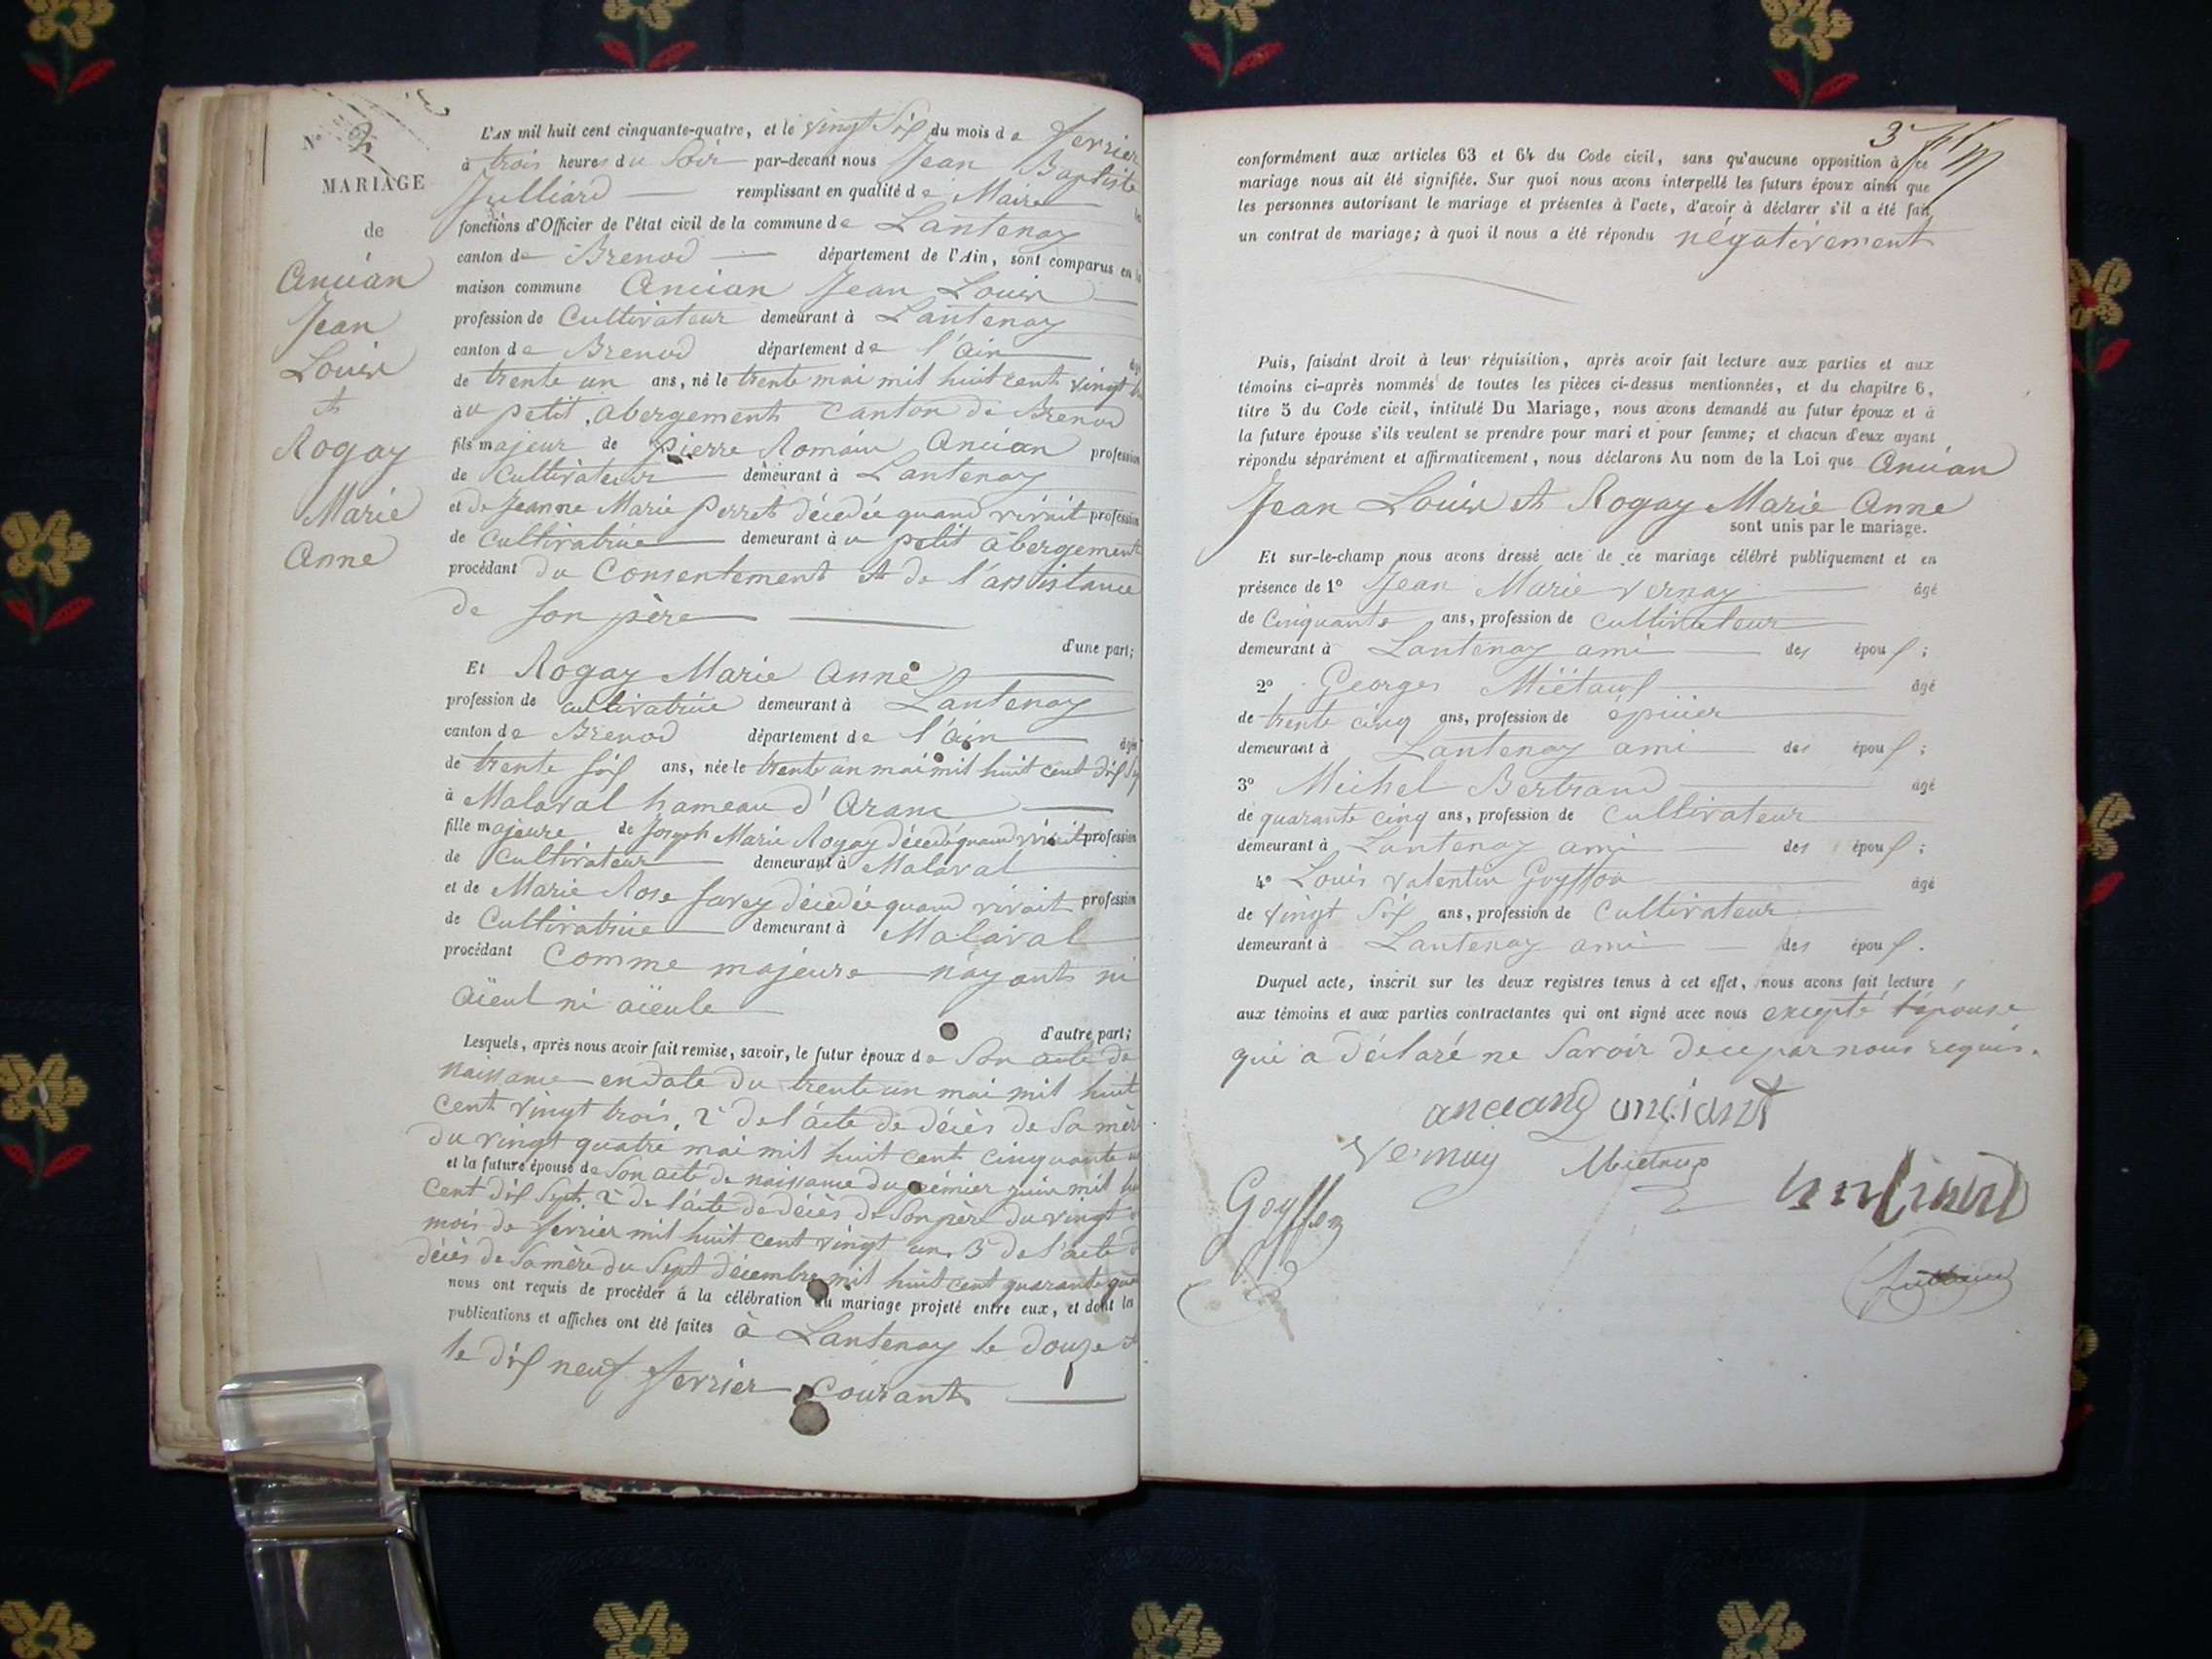 N° 2
MARIAGE
de
Ancian
Jean
Louis
et
Rogay
Marie
Anne
L'AN mil huit cent cinquante-quatre, et le vingt Six du mois de fevrier
à trois heures du Soir par-devant nous Jean Baptiste
Julliard remplissant en qualité de Maire
fonctions d'Officier de l'état civil de la commune de Lantenay
canton de Brenod département de l'Ain, sont comparus en la
maison commune Ancian Jean Louis
profession de Cultivateur demeurant à Lantenay
canton de Brenod département de l'ain
de trente un ans, né le trente mai mil huit cent vingt
au petit abergement Canton de Brenod
fils majeur de Pierre Romain Ancian profession
de Cultivateur demeurant à Lantenay
et de Jeanne Marie Perret décedée quand vivait profession
de Cultivatrice demeurant à u petit abergement
procédant du Consentement et de l'assistance
de Son père
d'une part;
Et Rogay Marie Anne
profession de cultivatrice demeurant à Lantenay
canton de Brenod département de l'ain
de trente Six ans, née le trente un mai mil huit cent dix
à Malaval hameau d'Aranc
fille majeure de Joseph Marie Rogay décedé quand vivait profession
de Cultivateur demeurant à Malaval
et de Marie Rose Savey décedée quand vivait profession
de Cultivatrice demeurant à Malaval
procédant Comme majeure n'ayant ni
aïeul ni aïeule
d'autre part;
Lesquels, après nous avoir fait remise, savoir, le futur époux de Son acte de
naissance en date du trente un mai mil huit
cent vingt trois, 2° de l'acte de décès de Sa mère
du vingt quatre mai mil huit cent cinquante
et la future épouse de Son acte de naissance du prémier juin mil
cent dix Sept, 2° de l'acte de décès de Son père du vingt
mois de fevrier mil huit cent vingt un. 3° de l'acte
décès de Sa mère du Sept décembre mil huit cent quarante
nous ont requis de procéder à la célébration du mariage projeté entre eux, et dont les
publications et affiches ont été faites à Lantenay le douze et
le dix neuf fevrier Courant
3
conformément aux articles 63 et 64 du Code civil, sans qu'aucune opposition à ce
mariage nous ait été signifiée. Sur quoi nous avons interpellé les futurs époux ainsi que
les personnes autorisant le mariage et présentes à l'acte, d'avoir à déclarer s'il a été fait
un contrat de mariage; à quoi il nous a été répondu négativement
Puis, faisant droit à leur réquisition, après avoir fait lecture aux parties et aux
témoins ci-après nommés de toutes les pièces ci-dessus mentionnées, et du chapitre 6,
titre 5 du Code civil, intitulé Du Mariage, nous avons demandé au futur époux et à
la future épouse s'ils veulent se prendre pour mari et pour femme; et chacun d'eux ayant
répondu séparément et affirmativement, nous déclarons Au nom de la Loi que Ancian
Jean Louis et Rogay Marie Anne
sont unis par le mariage.
Et sur-le-champ nous avons dressé acte de ce mariage célébré publiquement et en
présence de 1° Jean Marie Vernay âgé
de Cinquante ans, profession de Cultivateur
demeurant à Lantenay ami des époux;
2° Georges Miétaux âgé
de trente cinq ans, profession de épicier
demeurant à Lantenay ami des époux;
3° Michel Bertrand âgé
de quarante cinq ans, profession de Cultivateur
demeurant à Lantenay ami des époux;
4° Louis Valentin Goyffon âgé
de Vingt Six ans, profession de Cultivateur
demeurant à Lantenay ami des époux.
Duquel acte, inscrit sur les deux registres tenus à cet effet, nous avons fait lecture
aux témoins et aux parties contractantes qui ont signé avec nous excepté l'épouse
qui a déclaré ne Savoir de ce par nous requis.
anciant
Vernay Mietaux
Goyffon